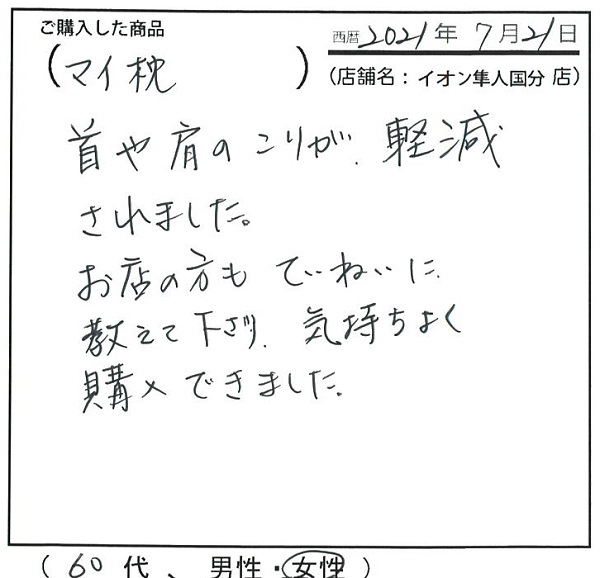 ご購入した商品
西暦 2021年 7月21日
(マイ枕)
(店舗名：イオン隼人国分 店)
首や肩のこりが、軽減
されました。
お店の方も ていねいに
教えて下さり、気持ちよく
購入できました。
(60代、男性・女性)